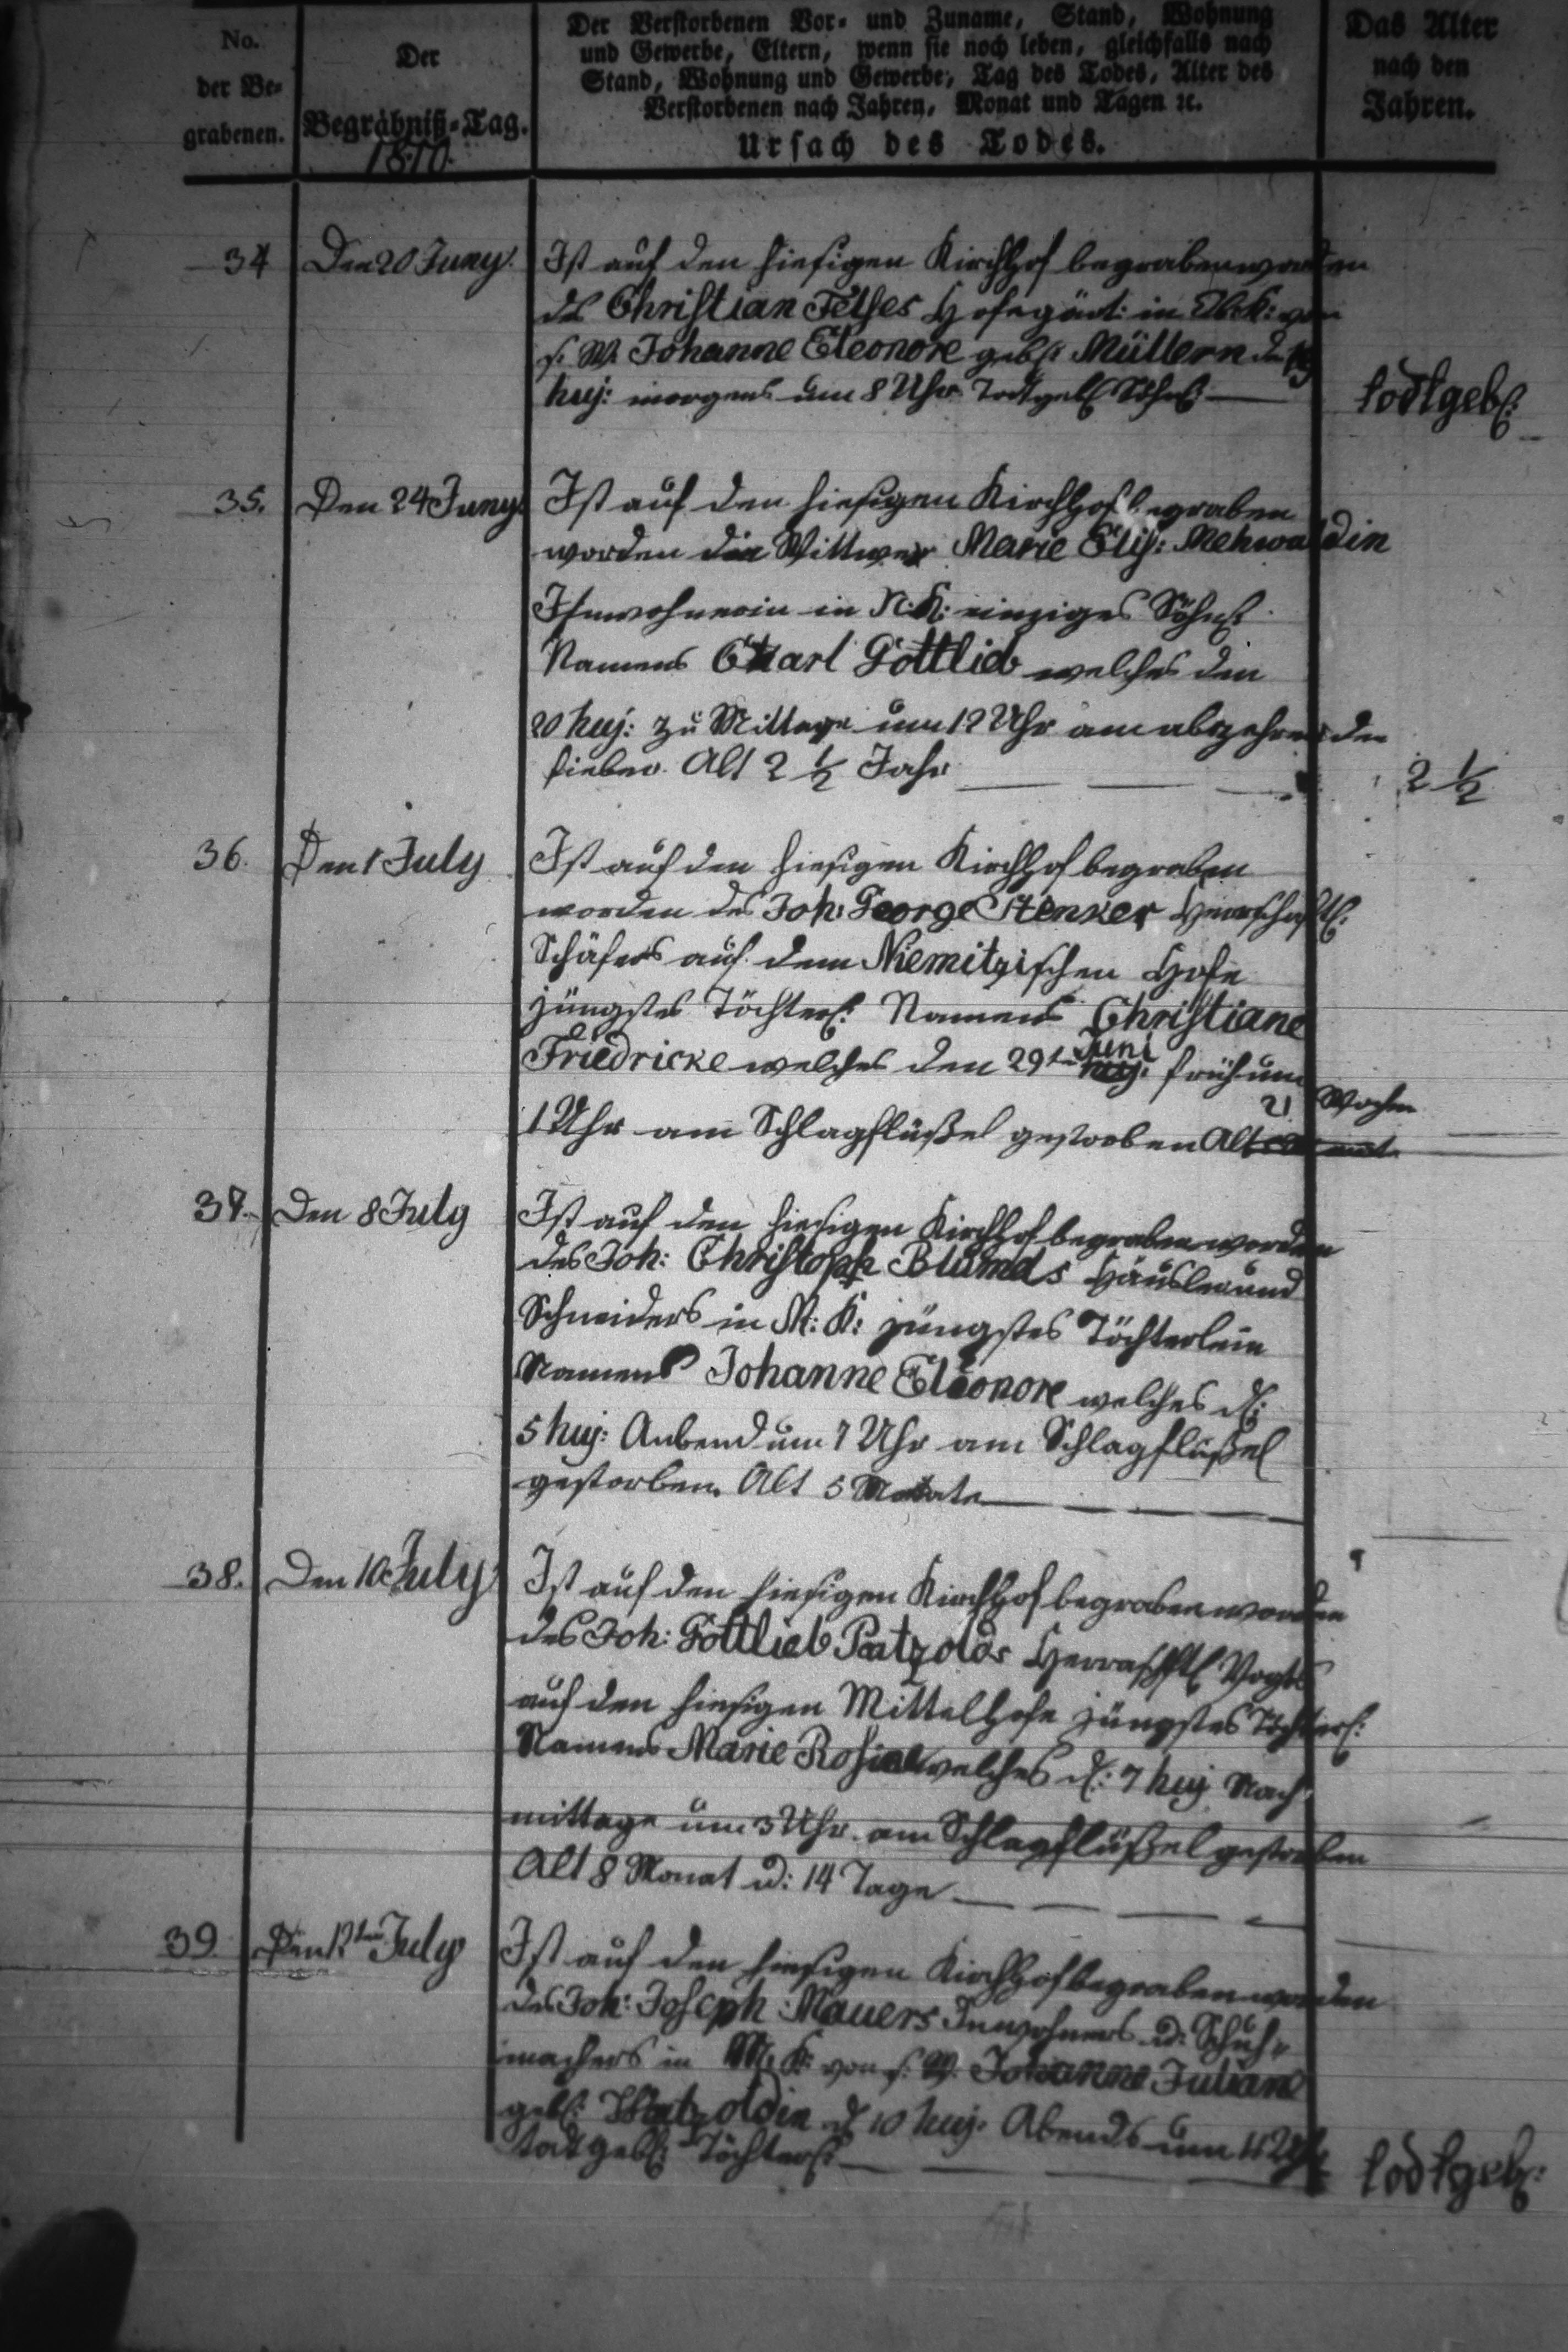 No.
der Be-
grabenen.
Der
Begräbniß-Tag.
1810.
Der Verstorbenen Vor- und Zuname, Stand, Wohnung
und Gewerbe, Eltern, wenn sie noch leben, gleichfalls nach
Stand, Wohnung und Gewerbe, Tag des Todes, Alter des
Verstorbenen nach Jahren, Monat und Tagen ꝛc.
Ursach des Todes.
Das Alter
nach den
Jahren.
34 Den 20 Juny. Ist auf den hiesigen Kirchhof begraben worden
des Christian Felses Hofegärt: in
s. W. Johanne Eleonore geb: Müllern
huj: morgens um 8 Uhr Todtgeb: Söhnl:
todtgeb:
35. Den 24 Juny Ist auf den hiesigen Kirchhof begraben
worden die Wittwer Marie Elis: Mehwaldin
Inwohnerin in N: K: einziges Söhnl:
Namens Carl Gottlieb welches den
20 huj: zu Mittage um 12 Uhr am abzehrenden
fieber. Alt 2 1/2 Jahr
2 1/2
36. Den 1 July Ist auf den hiesigen Kirchhof begraben
worden des Joh: George Stenker Herrschaftl:
Schäfers auf dem Niemitzischen Hofe
jüngstes Töchterl: Namens Christiane
Friedricke welches den 29t Juni früh um
1 Uhr am Schlagflüßel gestorben Alt 21 Wochen
37. Den 8 July Ist auf den hiesigen Kirchhof begraben worden
des Joh: Christoph Blümels Häusler und
Schneiders in M: K: jüngstes Töchterlein
Namens Johanne Eleonore welches d:
5 huj: Aubend um 7 Uhr am Schlagflüßel
gestorben. Alt 5 Monate
38. Den 10 July Ist auf den hiesigen Kirchhof begraben worden
des Joh: Gottlieb Patzolds Herraschftl Vogts
auf den hiesigen Mittelhofe jüngstes Töchterl:
Namens Marie Rosine welches d: 7 huj Nach
mittage um 3 Uhr am Schlagflüßel gestorben
Alt 8 Monat u: 14 Tage
39 Den 12ten July Ist auf den hiesigen Kirchhof begraben worden
des Joh: Joseph Mauers Inwohners u: Schuh-
machers in M: K: von s. W. Johanne Juliane
geb: Patzoldin d 10 huj: Abends um 11 Uhr
todtgeb: Töchterl:
todtgeb: